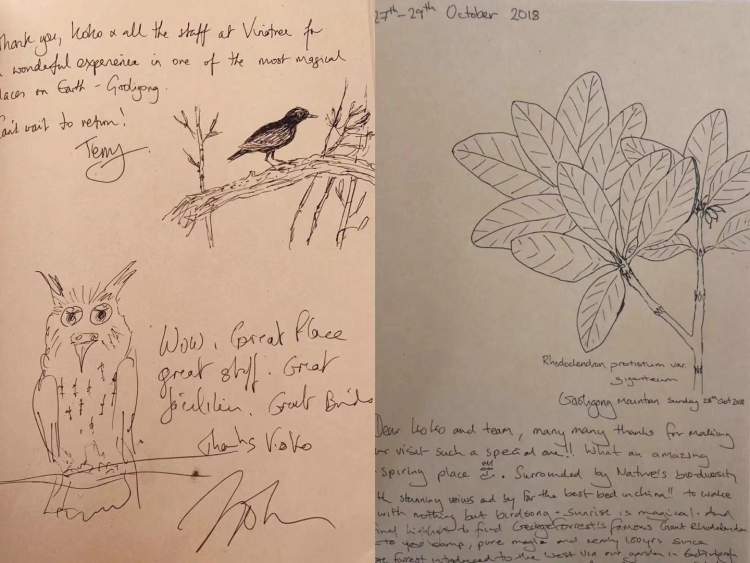 Thank you, Koko & all the staff at Vinetree for
a wonderful experience in one of the most magical
places on Earth - Gaoligong.
Can't wait to return!
Terry
Wow, Great Place
great staff. Great
facilities. Great Birds
Thanks Koko
John
27th-29th October 2018
Rhododendron protistum var.
giganteum
Gaoligong Mountain Sunday 28th Oct 2018
Dear Koko and team, many many thanks for making
our visit such a special one!! What an amazing
inspiring place. Surrounded by Nature's biodiversity
with stunning views and by far the best bed in china!! to wake
with nothing but birdsong - sunrise is magical. And
final highlight to find George Forrest's famous Giant Rhododendron
to your camp, pure magic and nearly 100yrs since
Forrest introduced to the west via our garden in Edinburgh